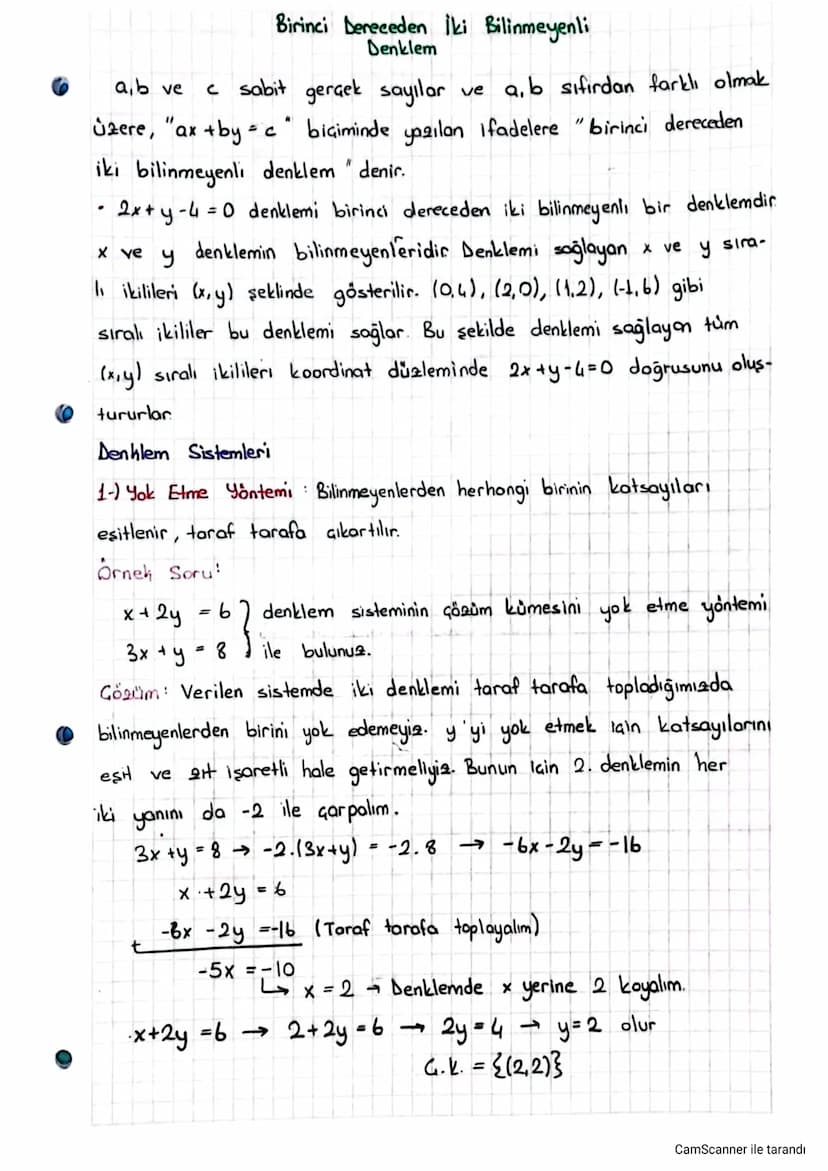 Birinci Dereceden İki Bilinmeyenli
Denklem
a,b ve c sabit gerçek sayılar ve a,b sıfırdan farklı olmak
üzere, "ax+by=c" biçiminde yazılan ifadelere "birinci dereceden
iki bilinmeyenli denklem" denir.
• 2x+y-4=0 denklemi birinci dereceden iki bilinmeyenli bir denklemdir.
x ve y denklemin bilinmeyenleridir. Denklemi sağlayan x ve y sıra-
lı ikilileri (x,y) şeklinde gösterilir. (0,4), (2,0), (1,2), (-1,6) gibi
sıralı ikililer bu denklemi sağlar. Bu şekilde denklemi sağlayan tüm
(x,y) sıralı ikilileri koordinat düzleminde 2x+y-4=0 doğrusunu oluş-
tururlar.
Denklem Sistemleri
1-) Yok Etme Yöntemi : Bilinmeyenlerden herhangi birinin katsayıları
eşitlenir, taraf tarafa çıkartılır.
Örnek Soru!
x+2y = 6 } denklem sisteminin çözüm kümesini yok etme yöntemi
3x+y = 8 } ile bulunuz.
Çözüm: Verilen sistemde iki denklemi taraf tarafa topladığımızda
bilinmeyenlerden birini yok edemeyiz. y'yi yok etmek için katsayılarını
eşit ve zıt işaretli hale getirmeliyiz. Bunun için 2. denklemin her
iki yanını da -2 ile çarpalım.
3x+y=8 → -2.(3x+y) = -2.8 → -6x-2y=-16
x+2y=6
+ -6x-2y=-16 (Taraf tarafa toplayalım)
-5x=-10
↳ x=2 → Denklemde x yerine 2 koyalım.
x+2y=6 → 2+2y=6 → 2y=4 → y=2 olur
Ç.K. = {(2,2)}
CamScanner ile tarandı